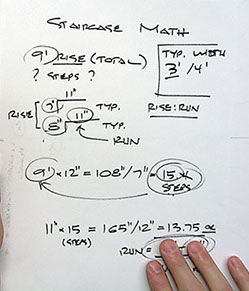 STAIRCASE MATH
9' RISE (TOTAL)
? STEPS ?
TYP. WIDTH
3'/4'
11"
RISE 7" TYP.
8" 11" TYP.
RUN
RISE:RUN
9' x 12" = 108"/7" = 15.4
STEPS
11" x 15 = 165"/12" = 13.75
(STEPS)
RUN =